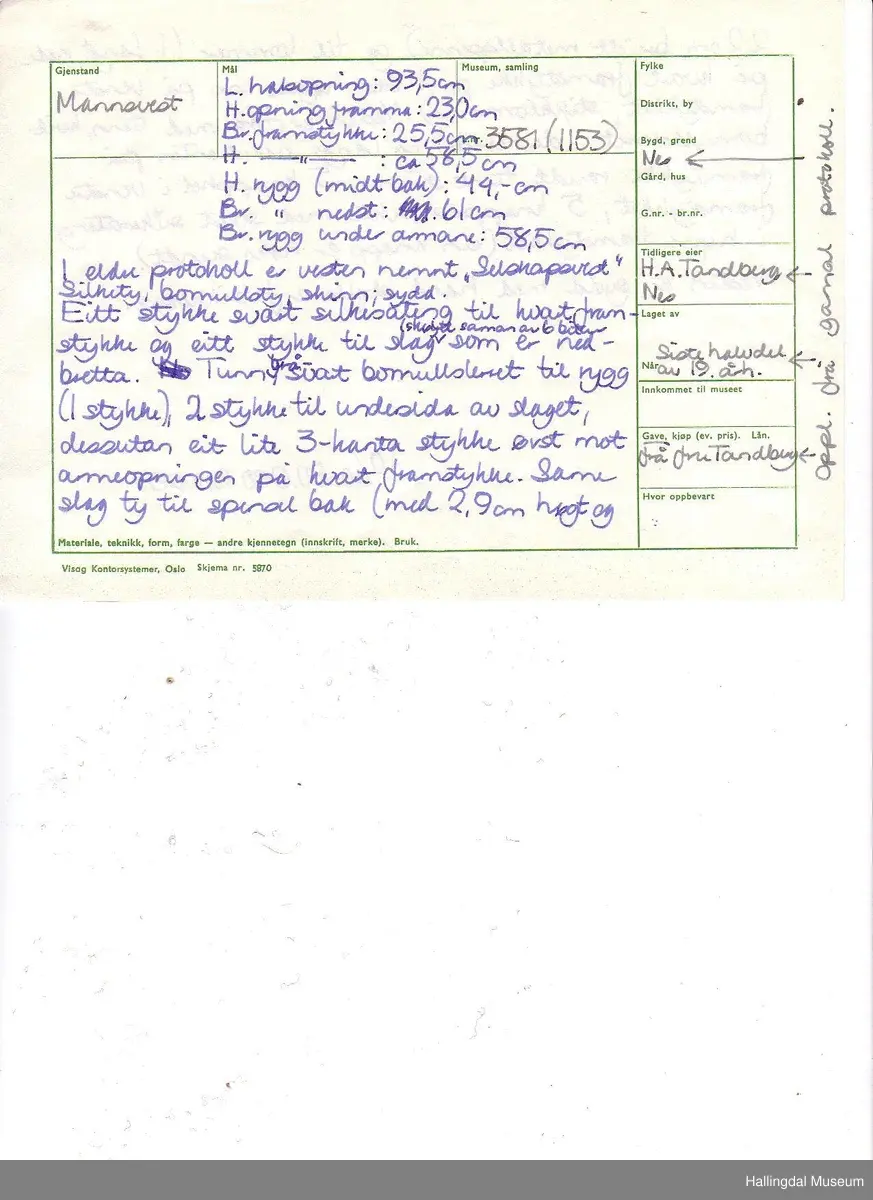 Gjenstand
Mannsvest
Mål
L. halsopning: 93,5cm
H. opning framma: 23,0cm
Br. framstykke: 25,5cm
H. —"— : ca 58,5cm
H. rygg (midt bak): 44,-cm
Br. " nedst: 61cm
Br. rygg under armane: 58,5cm
Museum, samling
nr. 3581 (1153)
I eldre protokoll er vesten nemnt „Selskapsvest"
Silkety, bomullsty, skinn; sydd.
Eitt stykke svart silkesateng til kvart fram-
stykke og eitt stykke til slag (skøytt saman av 6 bitar) som er ned-
bretta. Tunn, svart bomullslerret til rygg
(1 stykke), 2 stykke til undesida av slaget,
dessutan eit lite 3-kanta stykke øvst mot
armeopningen på kvart framstykke. Same
slag ty til spensel bak (med 2,9cm høgt og
Materiale, teknikk, form, farge — andre kjennetegn (innskrift, merke). Bruk.
Fylke
Distrikt, by
Bygd, grend
Nes
Gård, hus
G.nr. - br.nr.
Tidligere eier
H.A. Tandberg
Nes
Laget av
Når
Siste halvdel
av 19. årh.
Innkommet til museet
Gave, kjøp (ev. pris). Lån.
frå fru Tandberg
Hvor oppbevart
Oppl. frå gamal protokoll.
Visag Kontorsystemer, Oslo Skjema nr. 5870
Hallingdal Museum